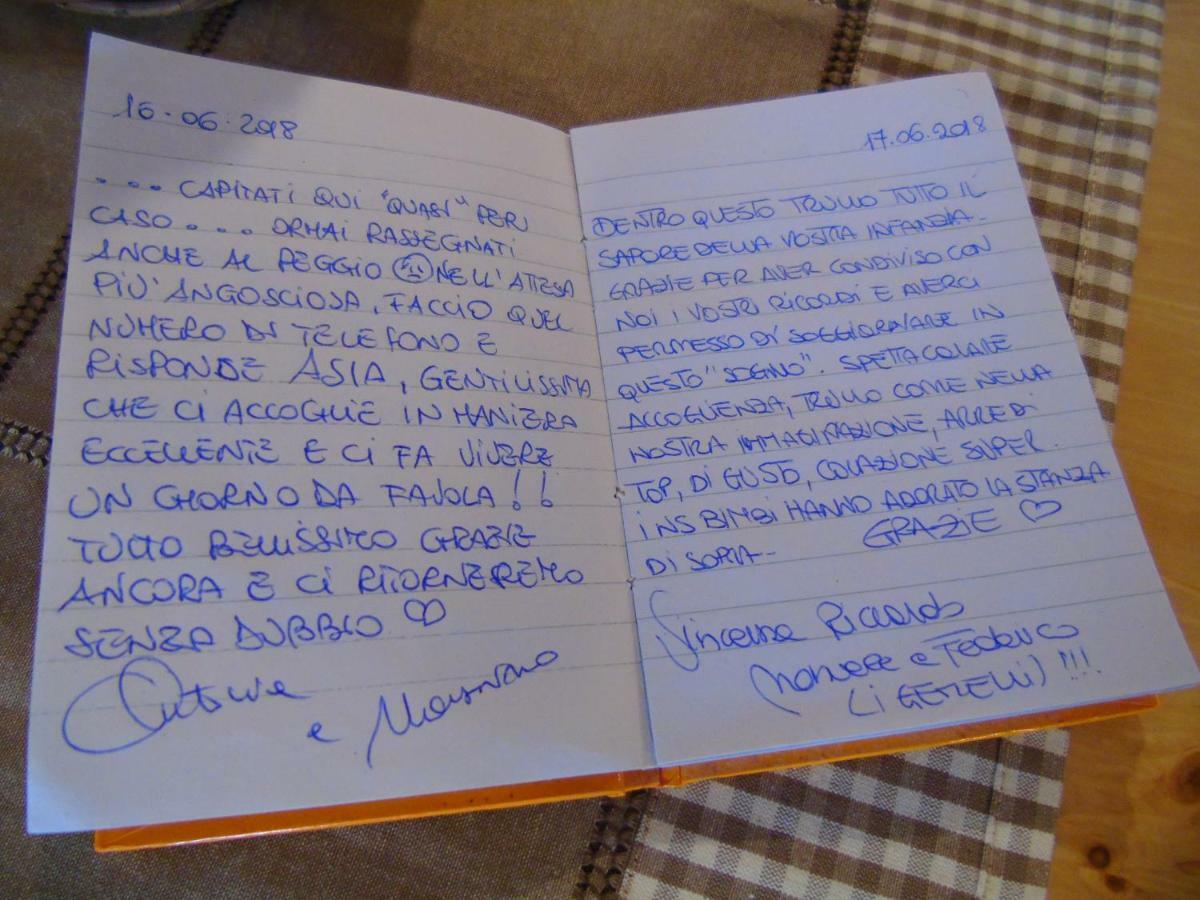 16.06.2018
.... CAPITATI QUI "QUASI" PER
CASO.... ORMAI RASSEGNATI
ANCHE AL PEGGIO NELL'ATTESA
PIÙ ANGOSCIOSA, FACCIO QUEL
NUMERO DI TELEFONO E
RISPONDE ASIA, GENTILISSIMA
CHE CI ACCOGLIE IN MANIERA
ECCELLENTE E CI FA VIVERE
UN GIORNO DA FAVOLA!!
TUTTO BELLISSIMO GRAZIE
ANCORA E CI RITORNEREMO
SENZA DUBBIO ♡
e
17.06.2018
DENTRO QUESTO TRULLO TUTTO IL
SAPORE DELLA VOSTRA INFANZIA.
GRAZIE PER AVER CONDIVISO CON
NOI I VOSTRI RICORDI E AVERCI
PERMESSO DI SOGGIORNARE IN
QUESTO "SOGNO". SPETTACOLARE
ACCOGLIENZA, TRULLO COME NELLA
NOSTRA IMMAGINAZIONE, ARREDI
TOP, DI GUSTO, COLAZIONE SUPER.
I NS BIMBI HANNO ADORATO LA STANZA
DI SOPRA- GRAZIE ♡
Riccardo
e Federico
(I GEMELLI)!!!